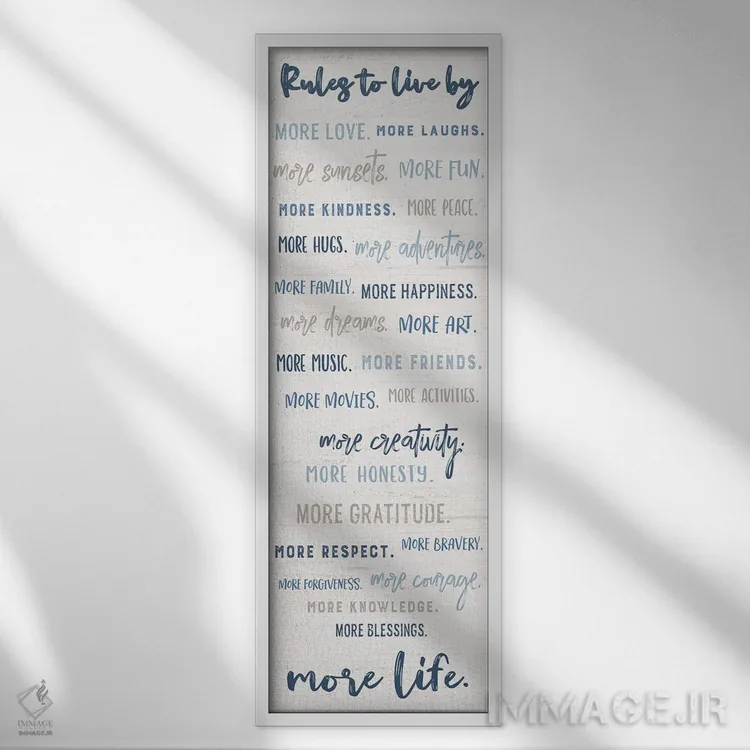 Rules to live by
MORE LOVE. MORE LAUGHS.
more sunsets. MORE FUN.
MORE KINDNESS. MORE PEACE.
MORE HUGS. more adventures.
MORE FAMILY. MORE HAPPINESS.
more dreams. MORE ART.
MORE MUSIC. MORE FRIENDS.
MORE MOVIES. MORE ACTIVITIES.
more creativity.
MORE HONESTY.
MORE GRATITUDE.
MORE RESPECT. MORE BRAVERY.
MORE FORGIVENESS. more courage.
MORE KNOWLEDGE.
MORE BLESSINGS.
more life.
IMMAGE
IMMAGE.IR
IMMAGE.IR